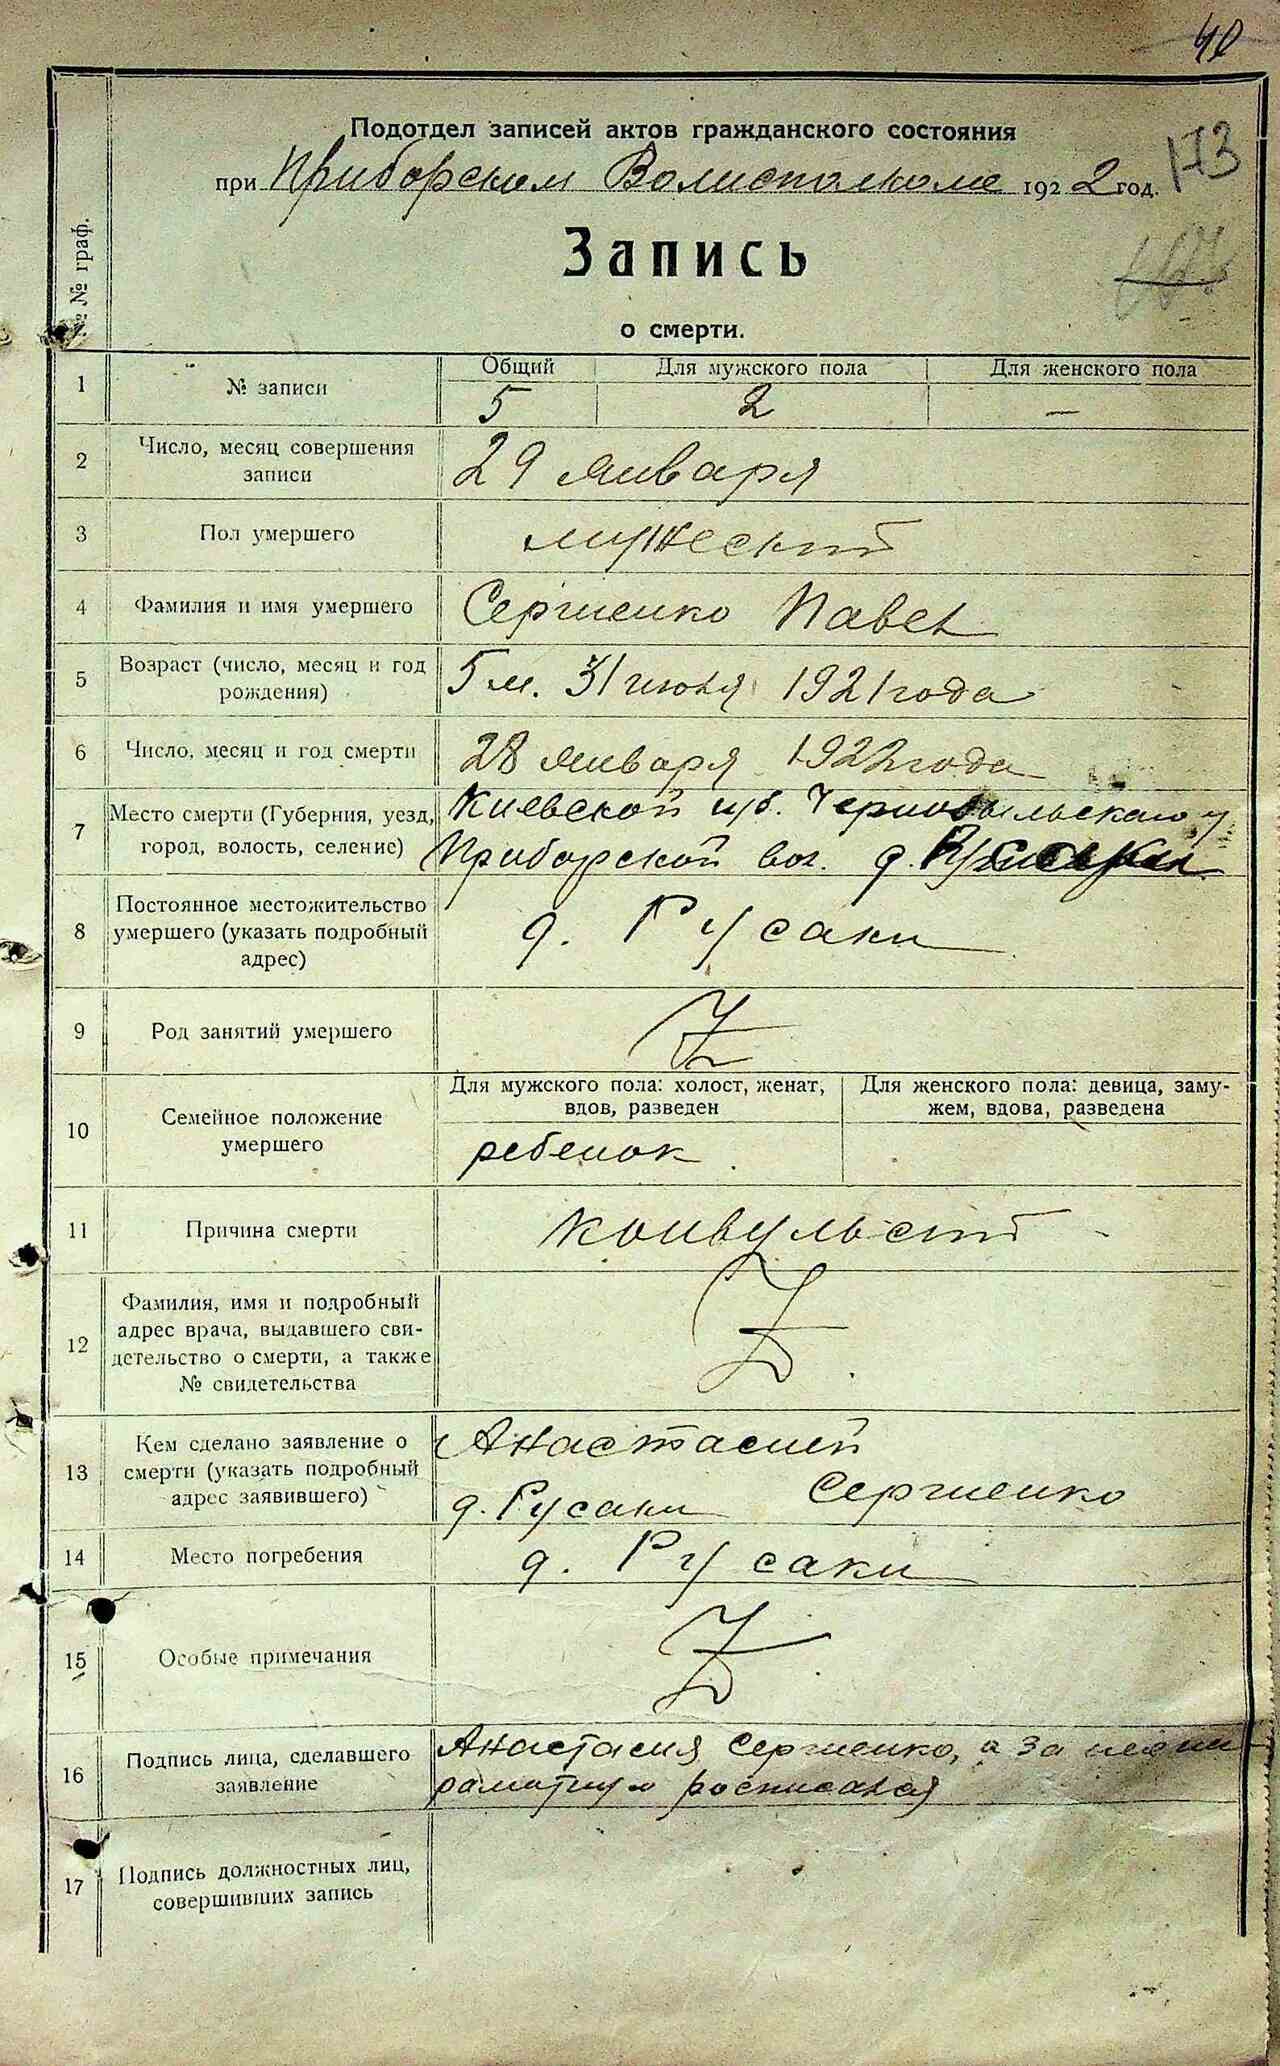 40
Подотдел записей актов гражданского состояния
при Приборском Волисполкоме 1922 год.
173
Запись
о смерти.
№№ граф.
1 № записи Общий Для мужского пола Для женского пола
5 2 —
2 Число, месяц совершения
записи
29 января
3 Пол умершего мужеский
4 Фамилия и имя умершего Сергиенко Павел
5 Возраст (число, месяц и год
рождения)
5 м. 31 июля 1921 года
6 Число, месяц и год смерти 28 января 1922 года
7 Место смерти (Губерния, уезд,
город, волость, селение)
Киевской губ. Чернобыльскаго у
Приборской вол. д.
8 Постоянное местожительство
умершего (указать подробный
адрес)
д. Русаки
9 Род занятий умершего
10 Семейное положение
умершего
Для мужского пола: холост, женат,
вдов, разведен
Для женского пола: девица, заму-
жем, вдова, разведена
ребенок
11 Причина смерти конвульсий
12 Фамилия, имя и подробный
адрес врача, выдавшего сви-
детельство о смерти, а также
№ свидетельства
13 Кем сделано заявление о
смерти (указать подробный
адрес заявившего)
Анастасией
Сергиенко
д. Русаки
14 Место погребения д. Русаки
15 Особые примечания
16 Подпись лица, сделавшего
заявление
Анастасия Сергиенко, а за
росписался
17 Подпись должностных лиц,
совершивших запись